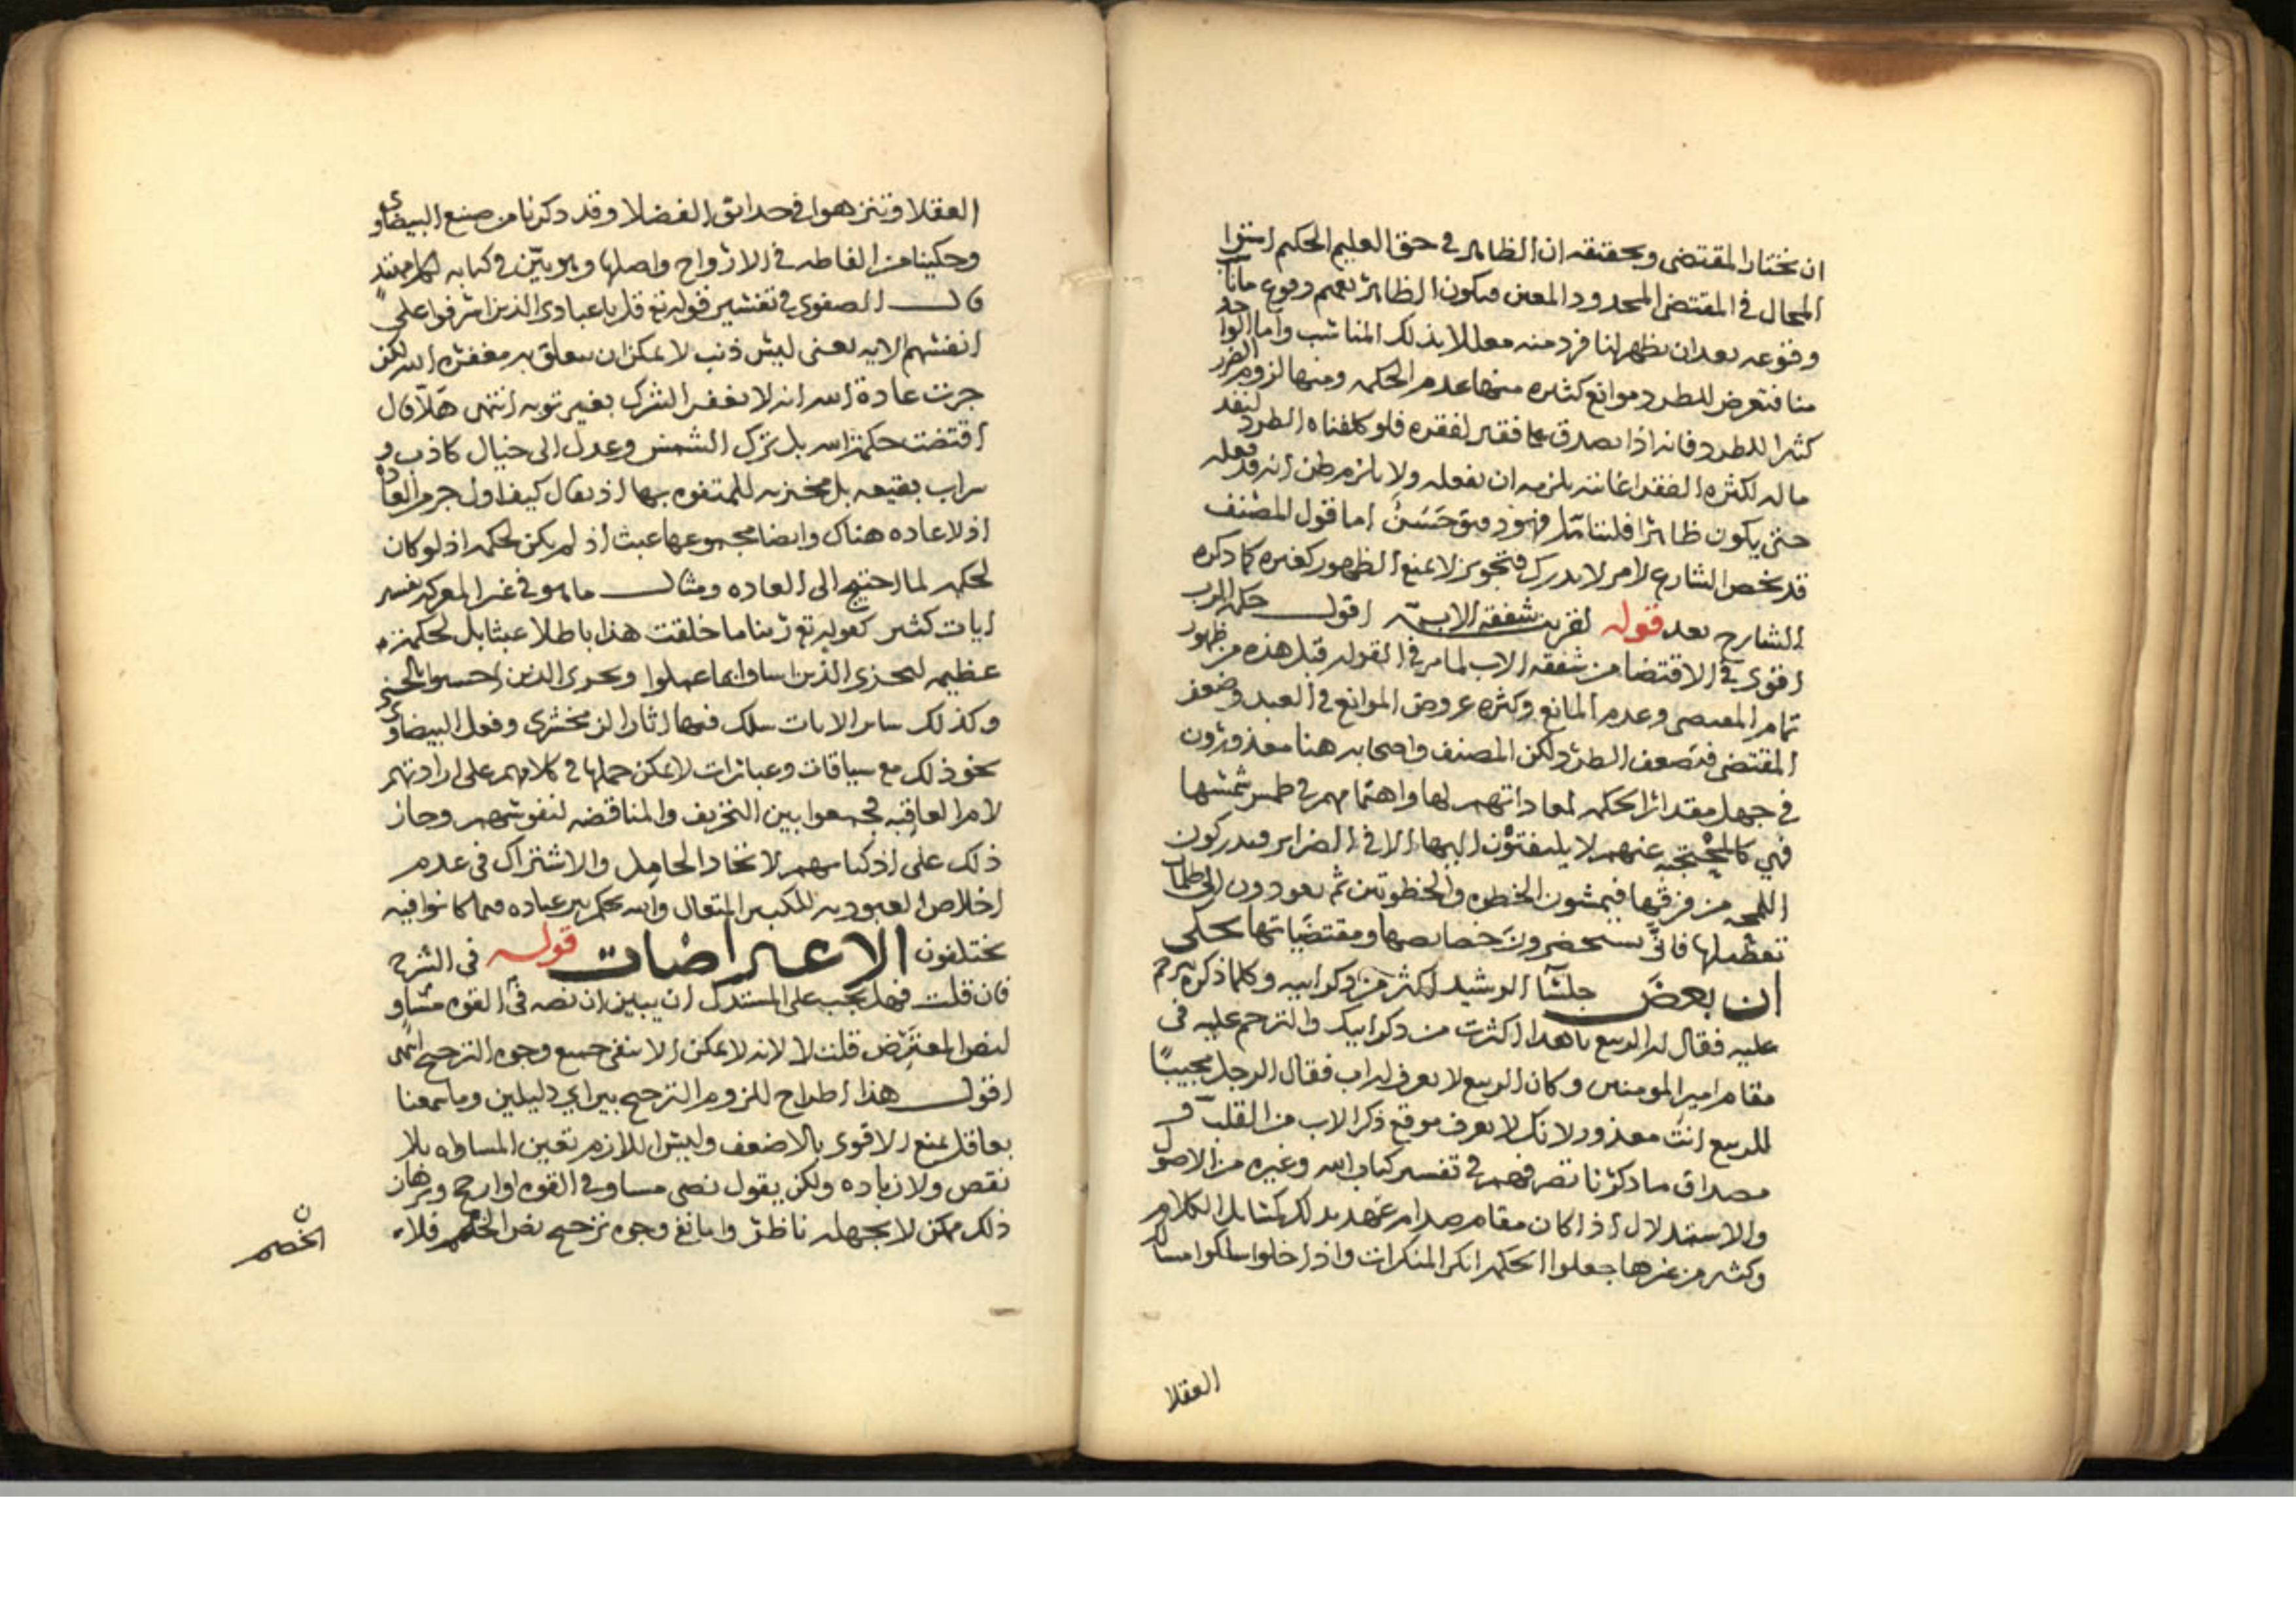 ان يختار المقتضى وتحقيقه ان الظاهر في حق العليم الحكيم استوا
المحال في المقتضى المحدود المعين فيكون الظاهر تعميم وقوع ما ناب
وقوعه بعد ان يظهر لنا فرد منه معللا بذلك المناسب واما الواحد
منا فتعرض للطرد موانع كثيره منها عدم الحكمه ومنها لزوم الضرر
كثيرا للطرد فانه اذا تصدق على فقير لفقره فلو كلفناه الطرد لنفد
ماله لكثره الفقرا غايته يلزمه ان يفعله ولا يلزم ظن انه قد فعله
حتى يكون ظاهرا فليتامل فهو دقيق حسن اما قول المصنف
قد يخص الشارع لامر لا يدرك فتجويز لا يمنع الظهور كغيره كما ذكره
الشارح بعد قوله لقرينة شفقة الاب اقول حكمة الرب
اقوى في الاقتضا من شفقة الاب لما مر في القوله قبل هذه من ظهور
تمام المقتضى وعدم المانع وكثره عروض الموانع في العبد وضعف
المقتضى فتضعف الطرد ولكن المصنف واصحابه هنا معذورون
في جهل مقدار الحكمه لمعاداتهم لها واهتمامهم في طمس شمسها
فهي كالمحتجبه عنهم لا يلتفتون اليها الا في الضراير فيدركون
اللمحه من فرقها فيمشون الخطوه والخطوتين ثم يعودون الى ظلمات
تعطيلها فانى يستحضرون خصايصها ومقتضياتها يحكى
ان بعض جلسا الرشيد اكثر من ذكر ابيه وكلما ذكره ترحم
عليه فقال له الربيع يا هذا اكثرت من ذكر ابيك والترحم عليه في
مقام امير المومنين وكان الربيع لا يعرف له اب فقال الرجل مجيبا
للربيع انت معذور لانك لا تعرف موقع ذكر الاب من القلب و
مصداق ما ذكرنا تصرفهم في تفسير كتاب الله وغيره من الاصول
والاستدلال اذا كان مقام صدام عهد بذلك كمسايل الكلام
وكثير من غيرها جعلوا الحكمه انكر المنكرات واذا خلوا سلكوا مسالك
العقلا
العقلا وتنزهوا في حدائق الفضلا وقد ذكرنا من صنع البيضاوي
وحكينا من الفاظه في الارواح واصلها وهو بين في كتابه
قال الصفوي في تفسير قوله تع قل يا عبادي الذين اسرفوا على
انفسهم الايه يعنى ليس ذنب لا يمكن ان يتعلق به مغفرة الله لكن
جرت عادة الله انه لا يغفر الشرك بغير توبه انتهى هلا قال
اقتضت حكمة الله بل ترك الشمس وعدل الى خيال كاذب و
سراب بقيعه بل مخزيه للمتفوه بها اذ يقال كيف اول جرم العاده
اذ لا عاده هناك وايضا مجموعها عبث اذ لم يكن لحكمه اذ لو كان
لحكمه لما احتيج الى العاده ومثال ما هو في غير المعركه تفسير
ايات كثير كقوله تع ربنا ما خلقت هذا باطلا عبثا بل لحكمة
عظيمه ليجزي الذين اساوا بما عملوا ويجزى الذين احسنوا بالحسنى
وكذلك ساير الايات سلك فيها اثار الزمخشري وفعل البيضاوي
نحو ذلك مع سياقات وعبارات لا يمكن حملها في كلامهم على ارادتهم
لام العاقبه فجمعوا بين التخريف والمناقضه لنفوسهم وجاز
ذلك على اذكيائهم لاتحاد الحامل والاشتراك في عدم
اخلاص العبوديه للكبير المتعال والله يحكم بين عباده فيما كانوا فيه
يختلفون الاعتراضات قوله في الشرح
فان قلت فهل يجب على المستدل ان يبين ان نصه في القوه مساو
لنص المعترض قلت لا لانه لا يمكن الا بنفي جميع وجوه الترجيح انتهى
اقول هذا اطراح للزوم الترجيح بين اي دليلين وما سمعنا
بعاقل يمنع الاقوى بالاضعف وليس اللازم تعين المساواه بلا
نقص ولا زياده ولكن يقول نصى مساو في القوه او ارجح وبرهان
ذلك ممكن لا يجهله ناظر واما نفي وجوه ترجيح نص الخصم فلان
الخصم